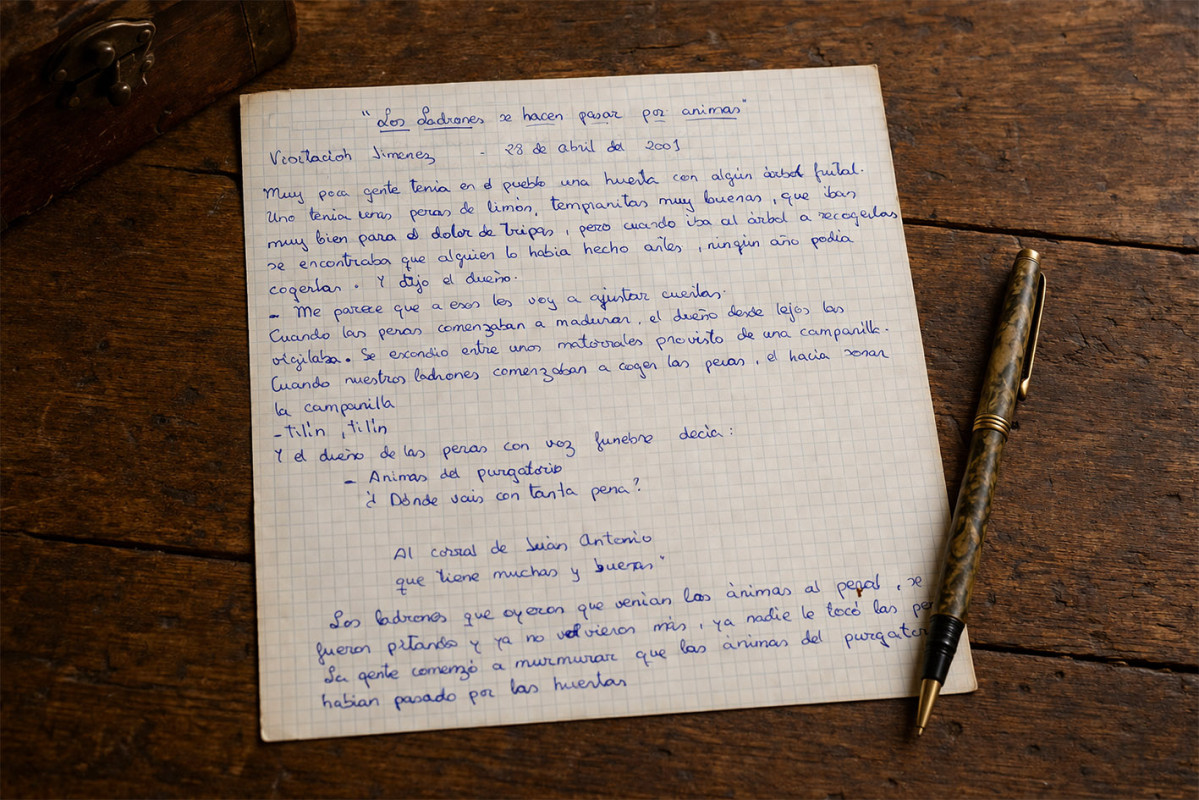 "Los Ladrones se hacen pasar por animas"
Visitacion Jimenez - 28 de abril del 2001
Muy poca gente tenia en el pueblo una huerta con algún árbol frutal.
Uno tenia unas peras de limón, tempranitas muy buenas, que iban
muy bien para el dolor de tripas, pero cuando iba al árbol a recogerlas
se encontraba que alguien lo habia hecho antes, ningún año podia
cogerlas. Y dijo el dueño.
- Me parece que a esos les voy a ajustar cuentas.
Cuando las peras comenzaban a madurar, el dueño desde lejos las
vigilaba. Se escondio entre unos matorrales provisto de una campanilla.
Cuando nuestros ladrones comenzaban a coger las peras, el hacia sonar
la campanilla
- tilín, tilín
Y el dueño de las peras con voz funebre decia:
- Animas del purgatorio
¿ Dónde vais con tanta pena?
Al corral de Juán Antonio
que tiene muchas y buenas"
Los ladrones que oyeron que venian las ánimas al peral, se
fueron pitando y ya no volvieron más, ya nadie le tocó las pe
La gente comenzó a murmurar que las ánimas del purgator
habian pasado por las huertas